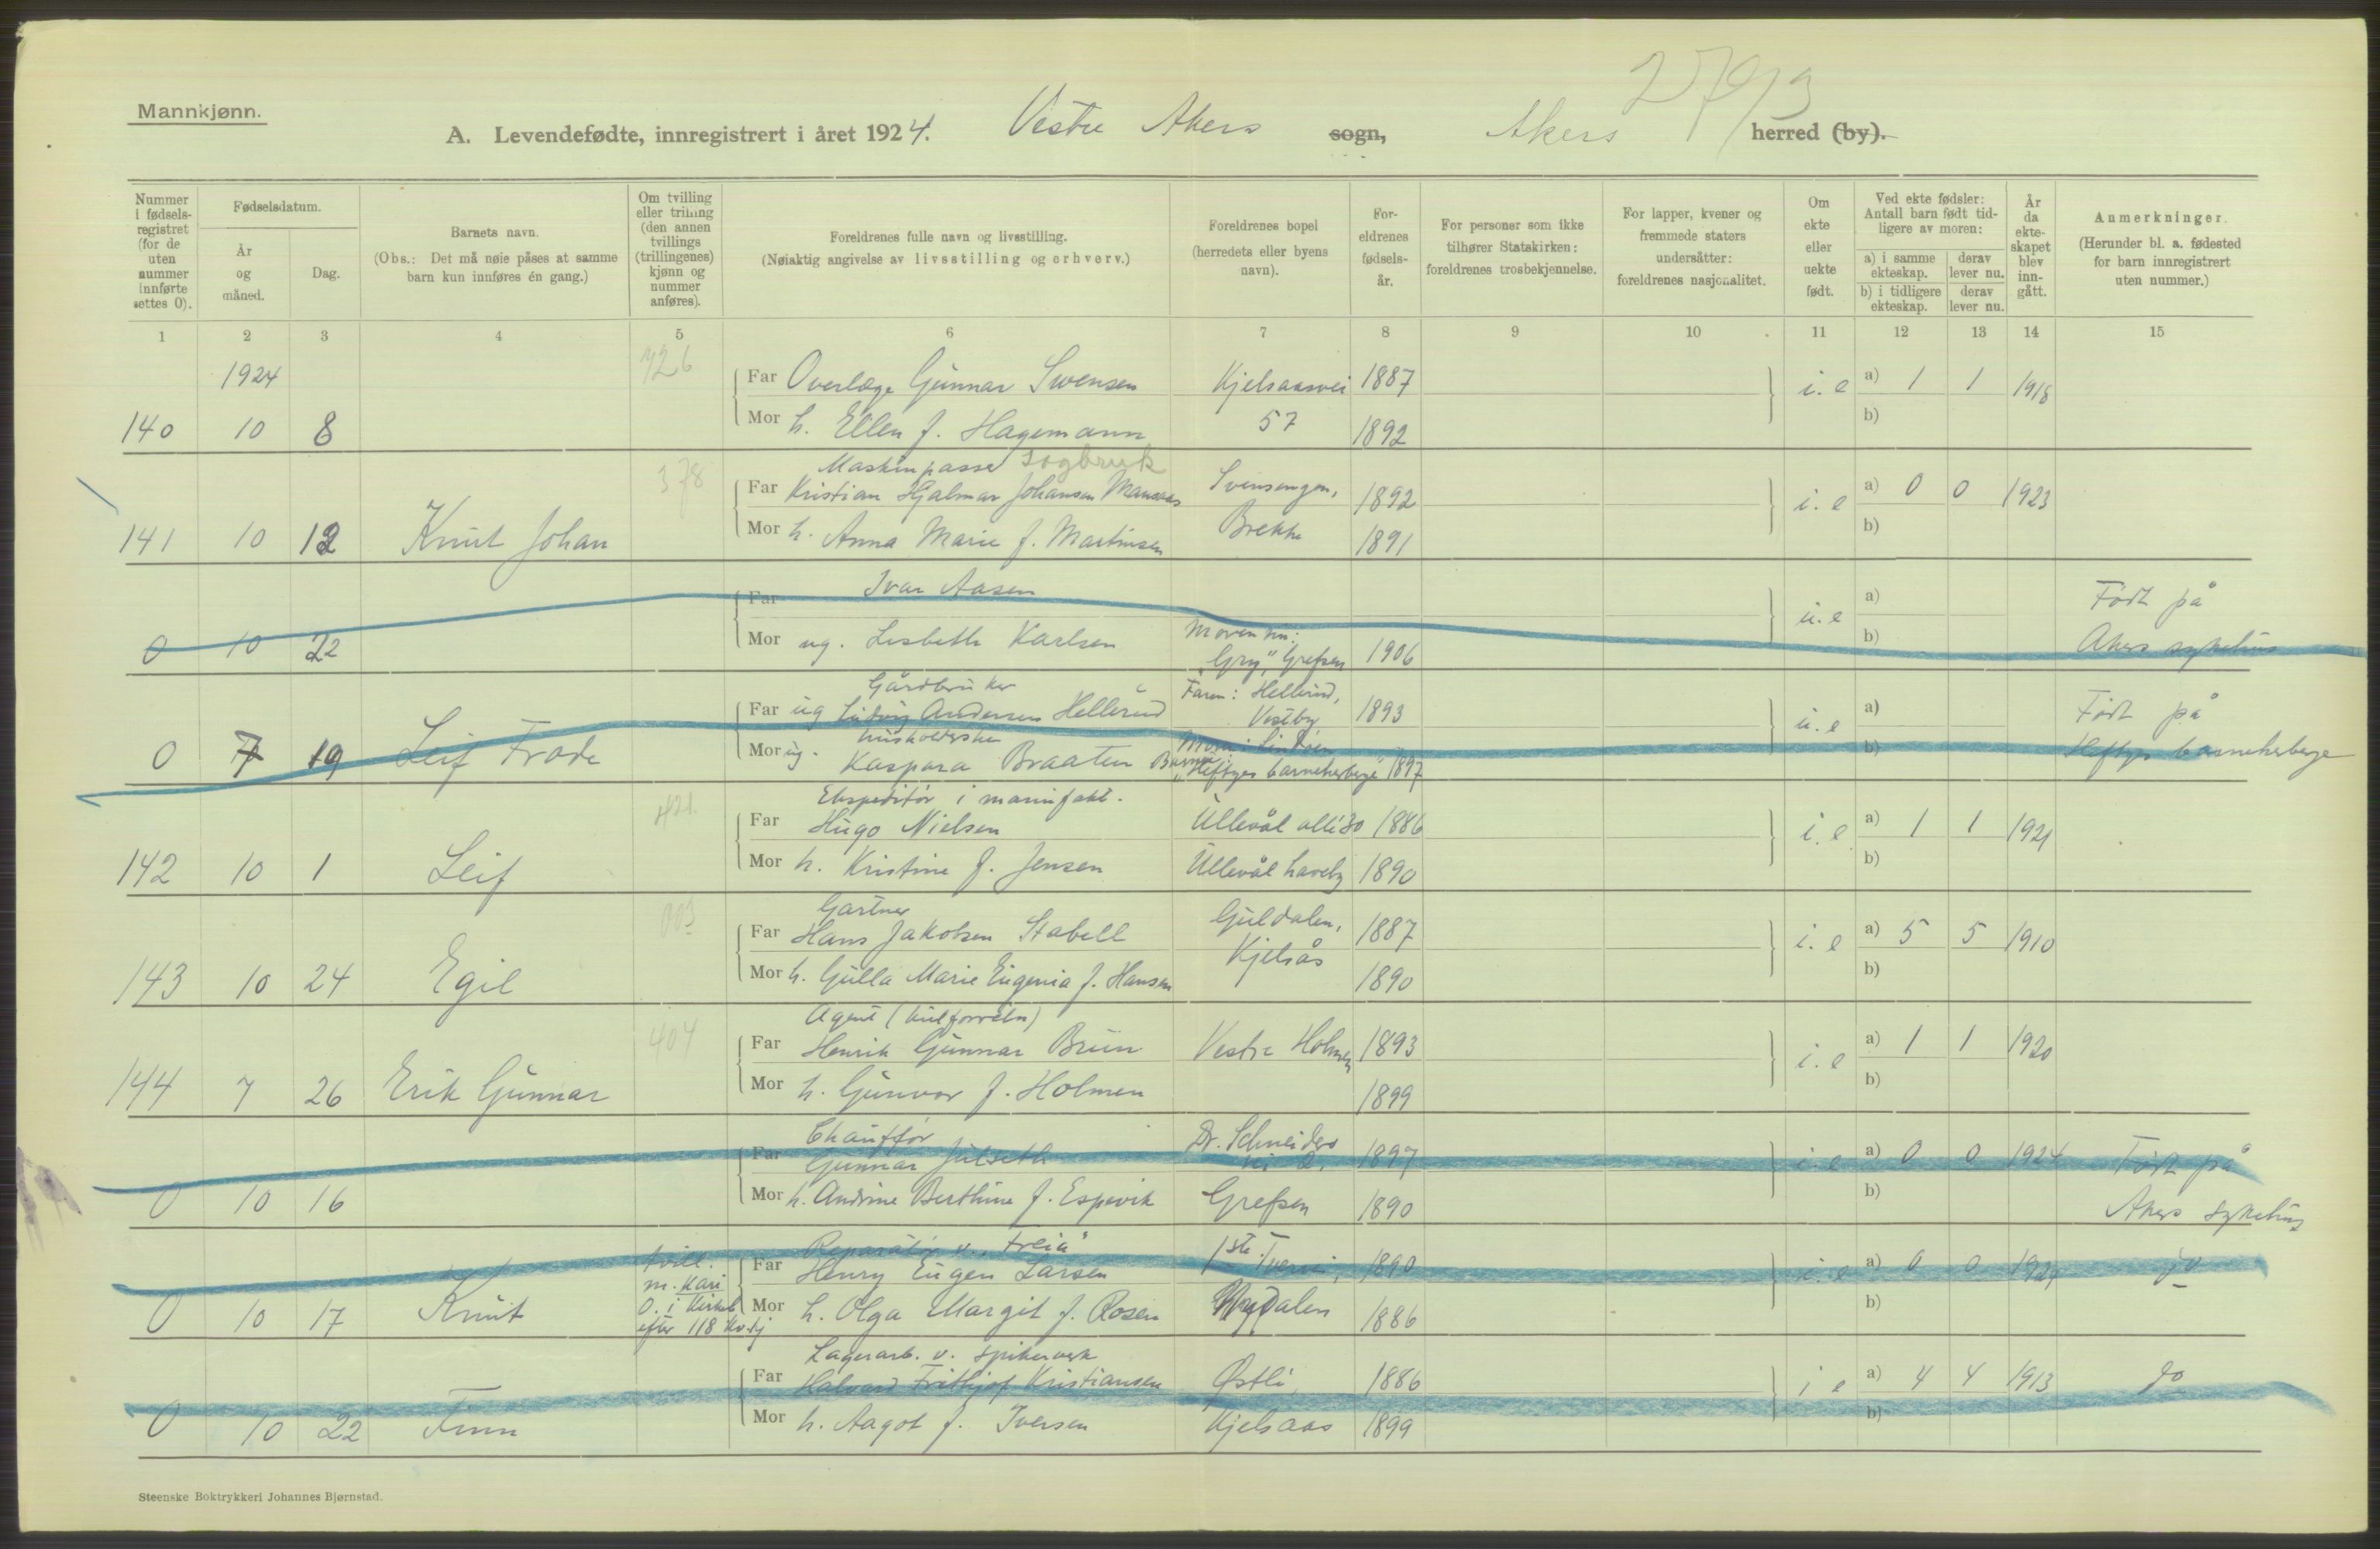 2793
Mannkjønn.
A. Levendefødte, innregistrert i året 1924. Vestre Akers sogn, Akers herred (by).
Nummer i fødsels-registret (for de uten nummer innførte settes 0).
Fødselsdatum.
År og måned.
Dag.
Barnets navn.
(Obs.: Det må nøie påses at samme barn kun innføres én gang.)
Om tvilling eller trilling (den annen tvillings (trillingenes) kjønn og nummer anføres).
Foreldrenes fulle navn og livsstilling.
(Nøiaktig angivelse av livsstilling og erhverv.)
Foreldrenes bopel (herredets eller byens navn).
For-eldrenes fødsels-år.
For personer som ikke tilhører Statskirken: foreldrenes trosbekjennelse.
For lapper, kvener og fremmede staters undersåtter: foreldrenes nasjonalitet.
Om ekte eller uekte født.
Ved ekte fødsler: Antall barn født tid-ligere av moren:
a) i samme ekteskap. derav lever nu.
b) i tidligere ekteskap. derav lever nu.
År da ekte-skapet blev inn-gått.
Anmerkninger.
(Herunder bl. a. fødested for barn innregistrert uten nummer.)
1 2 3 4 5 6 7 8 9 10 11 12 13 14 15
1924 726
Far Overlæge Gunnar Swensen Kjelsaasvei 1887 i. e a) 1 1 1918
140 10 8 Mor h. Ellen f. Hagemann 57 1892 b)
Maskinpasser sagbruk
378 Far Kristian Hjalmar Johansen Svensengen, 1892 i. e a) 0 0 1923
141 10 12 Knut Johan Mor h. Anna Marie f. Martinsen Brekke 1891 b)
Far Ivar Aasen u. e a) Født på
0 10 22 Mor ug. Lisbeth Karlsen Moren nu: "Gry", Grefsen 1906 b) Akers sykehus
Gårdbruker
Far ug Ludvig Andersen Hellerud Faren: Hellerud, Vestby 1893 u. e a) Født på
husholderske
0 7 19 Leif Frode Mor ug. Kaspara Braaten Barnet: "Heftyes barneherberge" 1897 b) Heftyes barneherberge
Ekspeditør i manufakt.
421. Far Hugo Nielsen Ullevål allé 30 1886 i. e a) 1 1 1921
142 10 1 Leif Mor h. Kristine f. Jensen Ullevål haveby 1890 b)
Gartner
003 Far Hans Jakobsen Stabell Guldalen, 1887 i. e a) 5 5 1910
143 10 24 Egil Mor h. Gulla Marie Eugenia f. Hansen Kjelsås 1890 b)
Agent
404 Far Henrik Gunnar Bruun Vestre Holmen 1893 i. e a) 1 1 1920
144 7 26 Erik Gunnar Mor h. Gunvor f. Holmen 1899 b)
Chauffør
Far Gunnar Julseth Dr. Schneiders vei 2, 1897 i. e a) 0 0 1924 Født på
0 10 16 Mor h. Andrine Berthine f. Espevik Grefsen 1890 b) Akers sykehus
Reparatør v. "Freia"
tvill. m. Kari Far Henry Eugen Larsen 1ste Tvervei, 1890 i. e a) 0 0 1924 do
0 10 17 Knut 0. i Kirkeb efter 118 Kvkj Mor h. Olga Margit f. Rosen Nydalen 1886 b)
Lagerarb. v. spikerverk
Far Halvard Frithjof Kristiansen Østli, 1886 i e a) 4 4 1913 do
0 10 22 Finn Mor h. Aagot f. Iversen Kjelsaas 1899 b)
Steenske Boktrykkeri Johannes Bjørnstad.